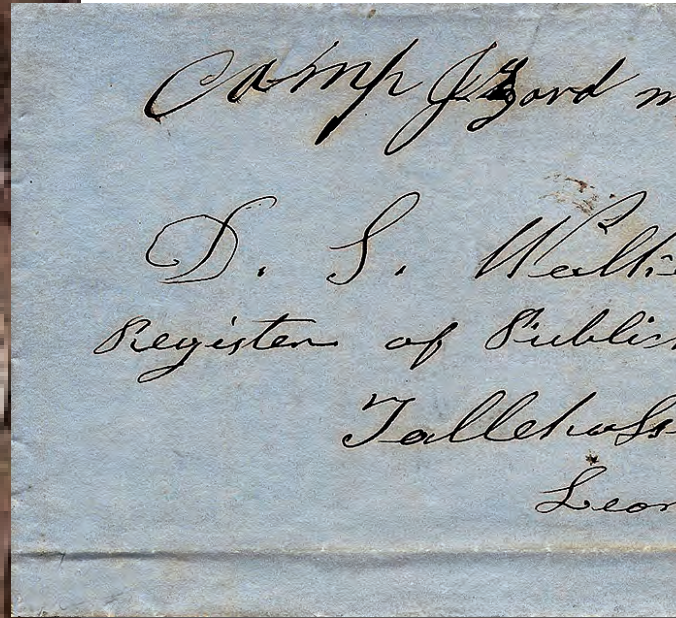 Camp Izard m
D. S. Walke
Register of Public
Tallehass
Leon